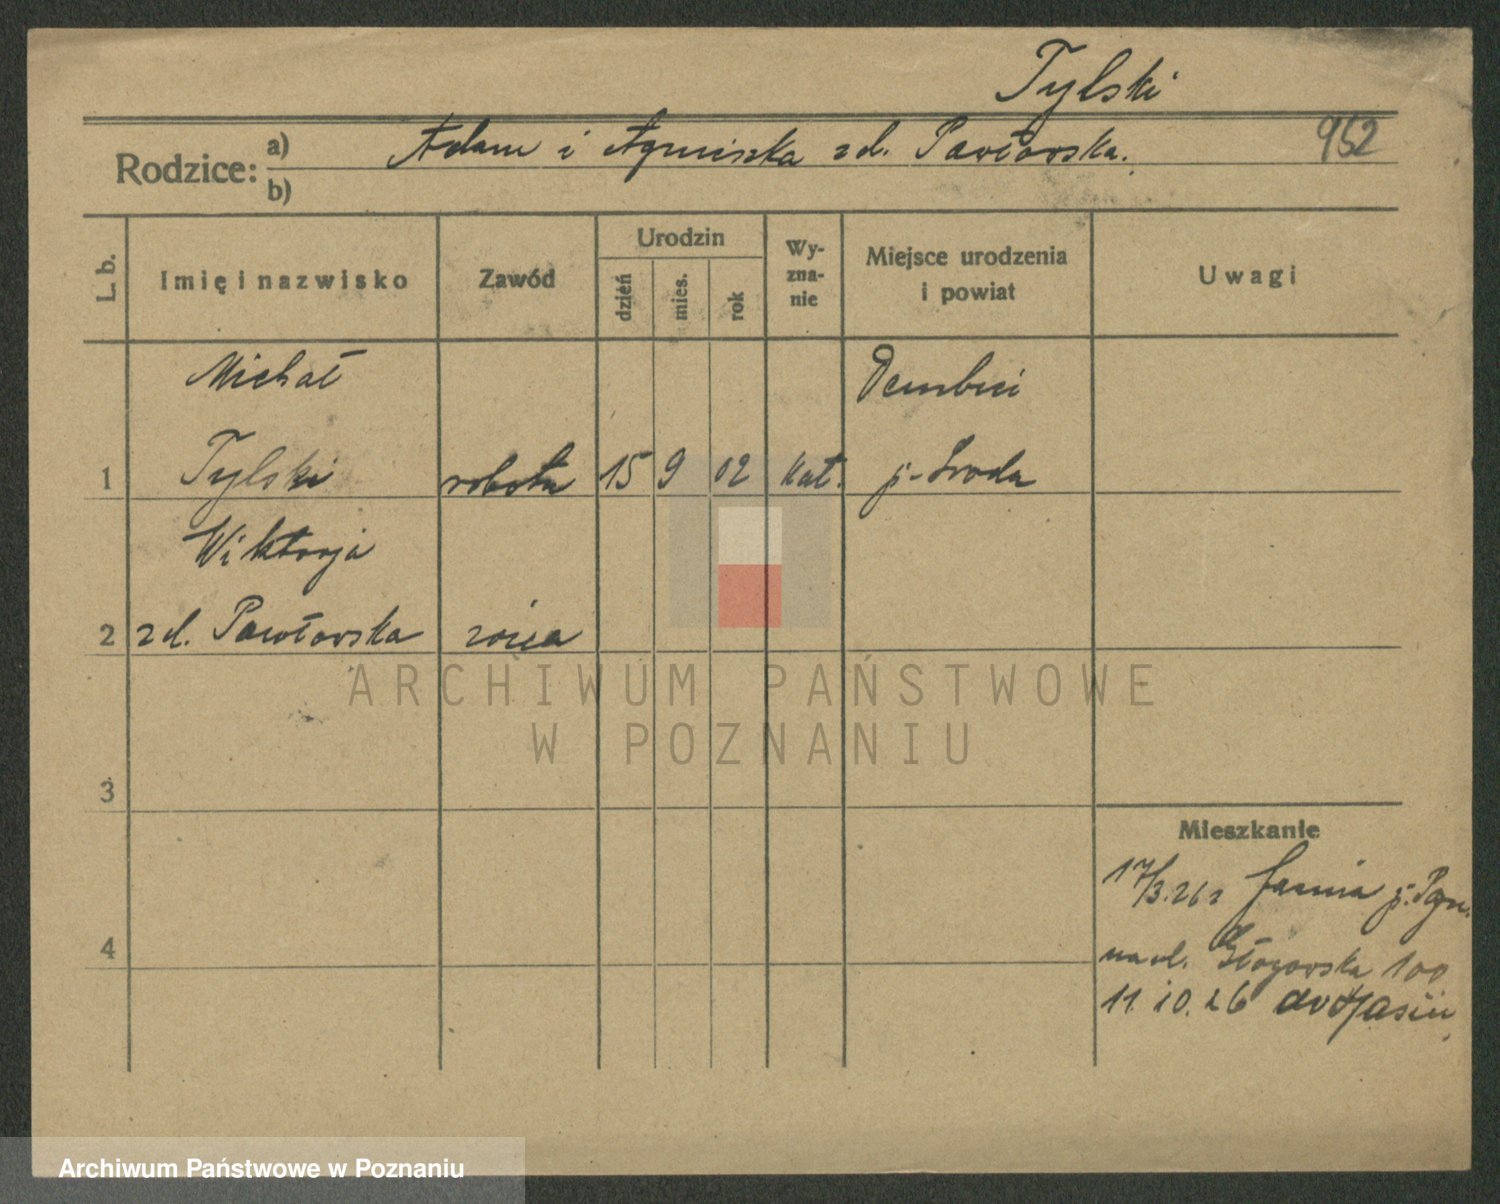 Tylski
Rodzice: a) Adam i Agniszka zd. Pawłowska. 952
b)
L. b. Imię i nazwisko Zawód Urodzin dzień mies. rok Wy-zna-nie Miejsce urodzenia i powiat Uwagi
Michał Dembici
1 Tylski robotn 15 9 02 kat. p-Środa
Wiktorja
2 zd. Pawłowska żona
ARCHIWUM PAŃSTWOWE
W POZNANIU
3
Mieszkanie
17/3.26 z p. Pozn.
4 na ul. Głogowska 100
11.10.26 do
Archiwum Państwowe w Poznaniu